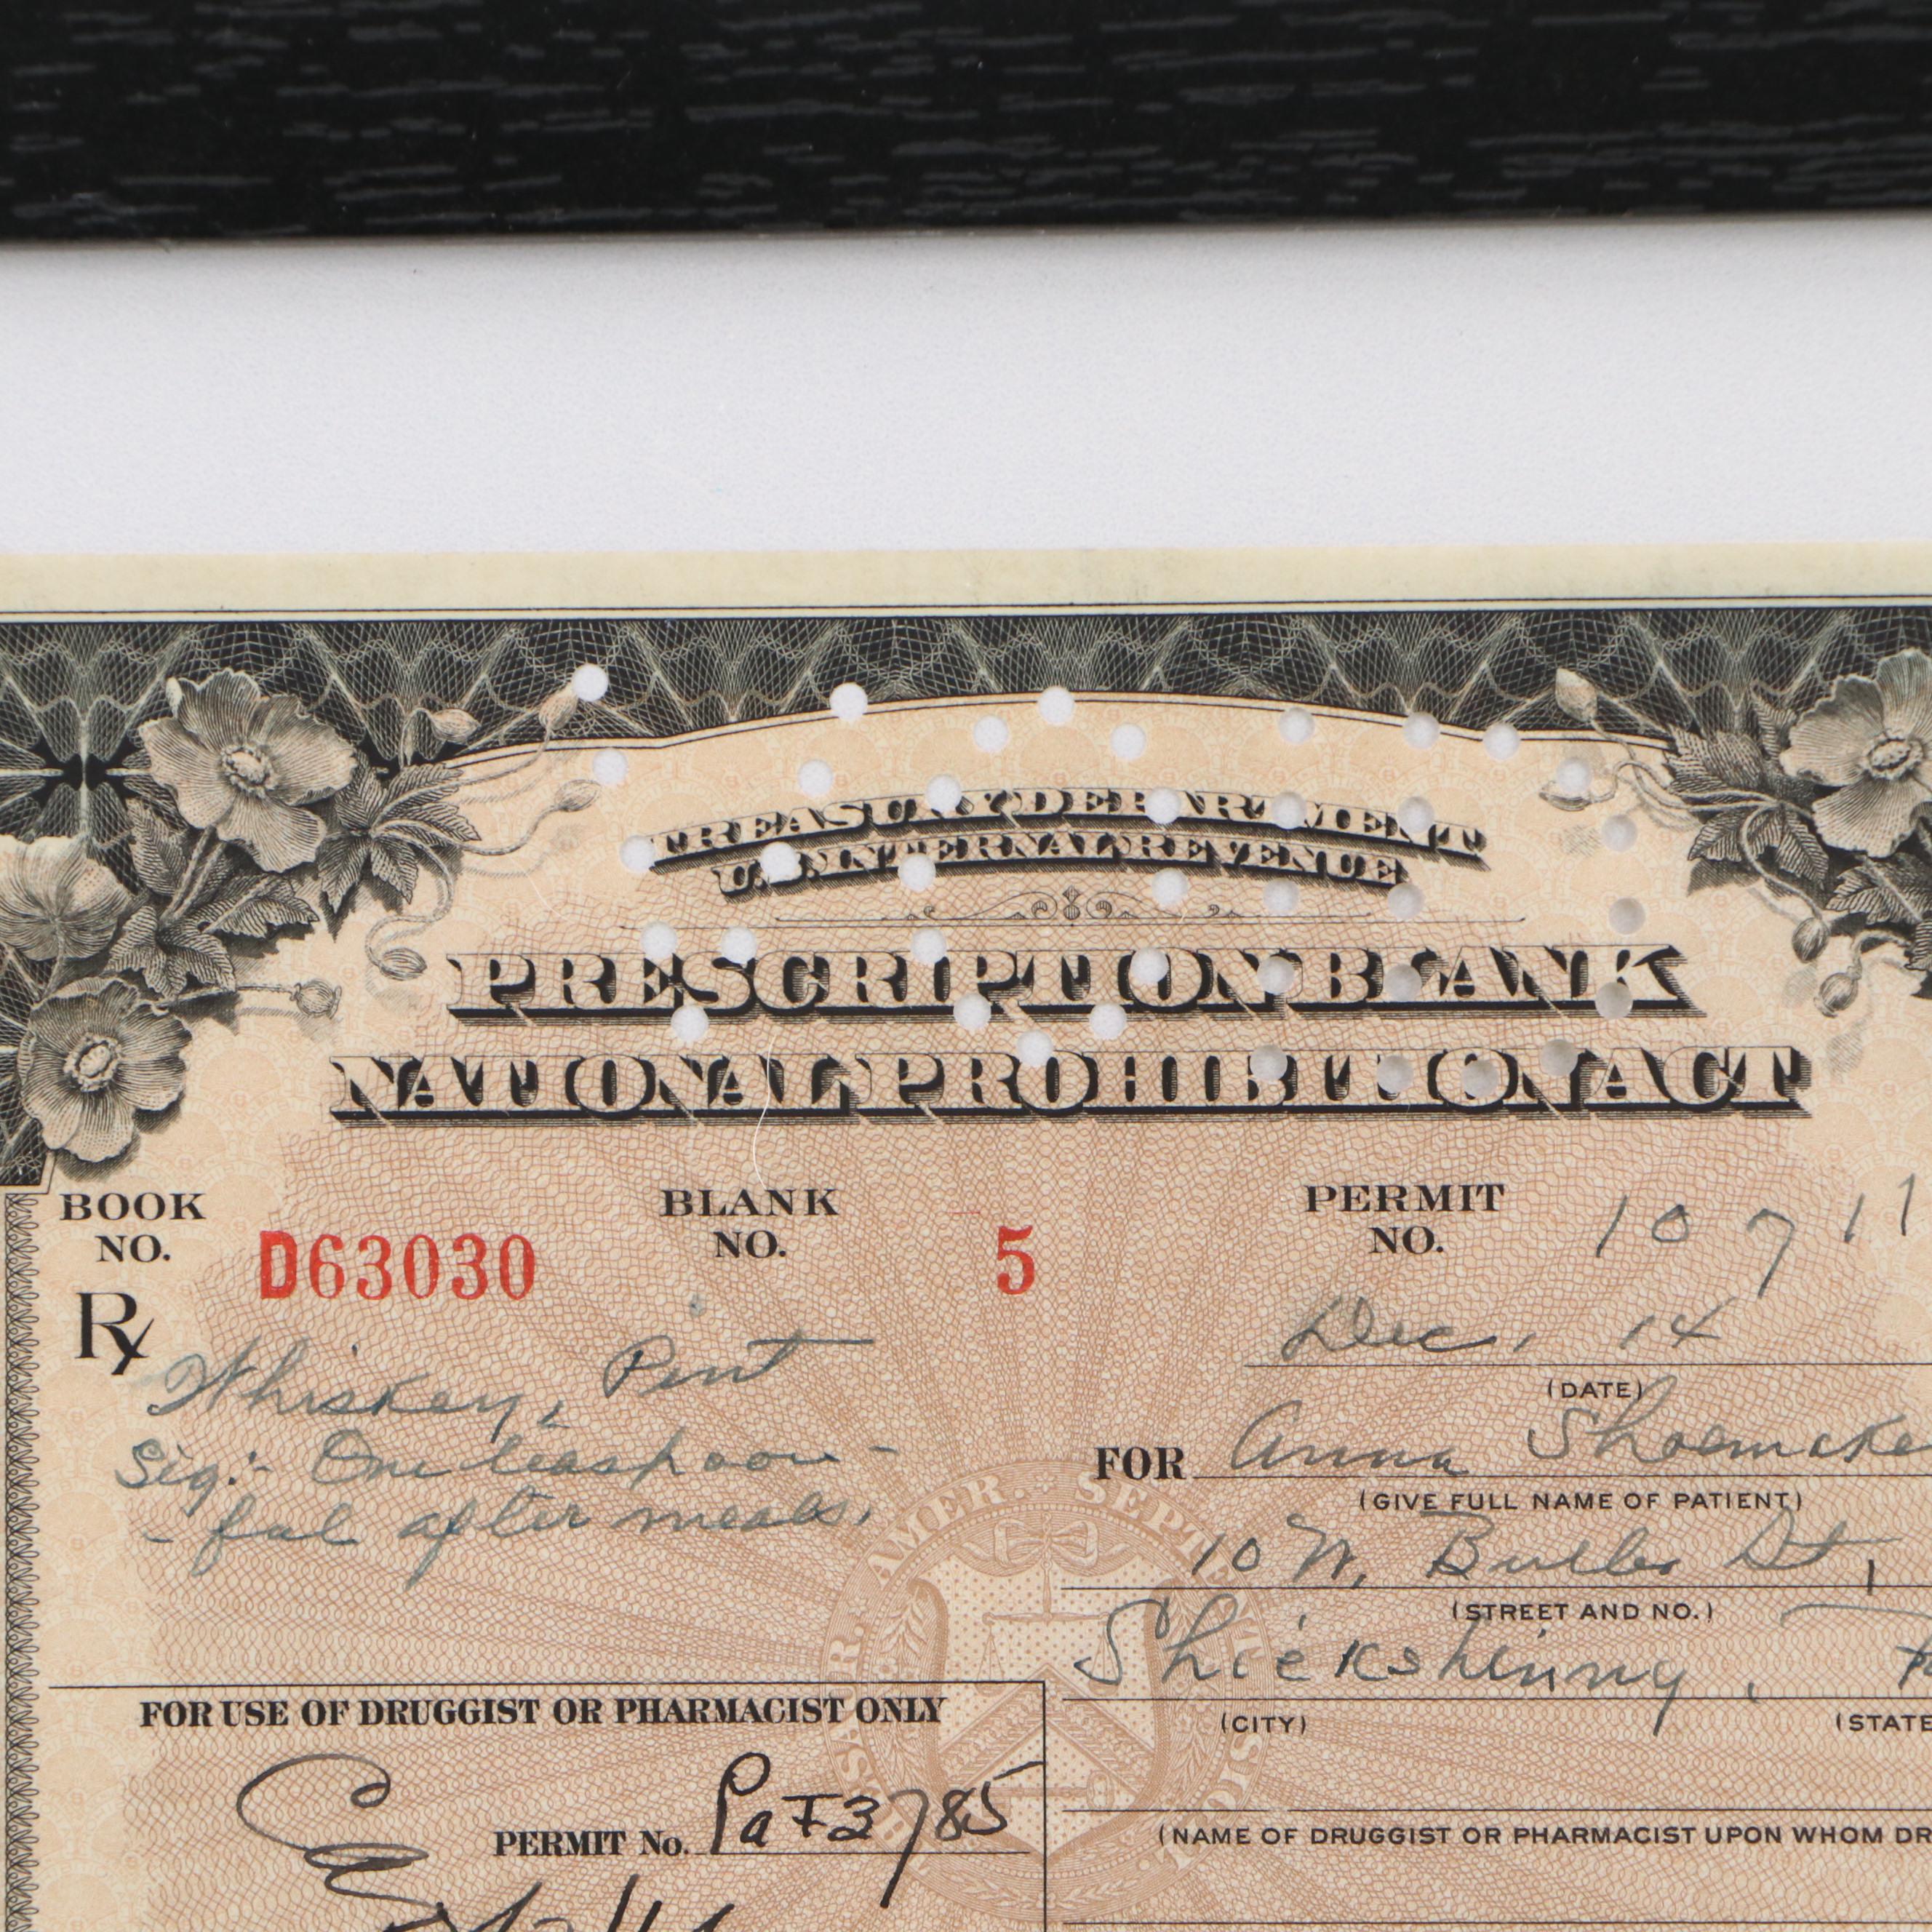 TREASURY DEPARTMENT
U.S. INTERNAL REVENUE
PRESCRIPTION BLANK
NATIONAL PROHIBITION ACT
BOOK NO. D63030 BLANK NO. 5 PERMIT NO. 10711
Rx
Whiskey, Pint
Sig:- One teaspoon-
-ful after meals,
Dec, 14
(DATE)
FOR Anna Shoemake
(GIVE FULL NAME OF PATIENT)
10 N, Butler St,
(STREET AND NO.)
Shickshinny,
(CITY) (STATE
FOR USE OF DRUGGIST OR PHARMACIST ONLY
PERMIT No. Pa F3785
(NAME OF DRUGGIST OR PHARMACIST UPON WHOM DR
AMER. SEPTE